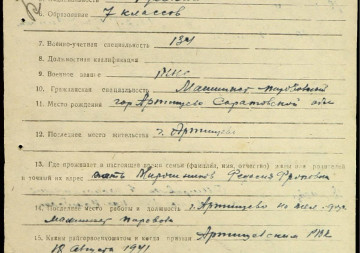 6. Образование 7 классов
7. Военно-учетная специальность 134
8. Должностная квалификация
9. Военное звание
10. Гражданская специальность Машинист паровозный
11. Место рождения гор. Артищево Саратовской обл
12. Последнее место жительства г. Артищево
13. Где проживает в настоящее время семья (фамилия, имя, отчество) жены или родителей
и точный их адрес мать Мирошников
14. Последнее место работы и должность г. Артищево
Машинист паровоза
15. Каким райгорвоенкоматом и когда призван Артищевским РВК
18 Августа 1941